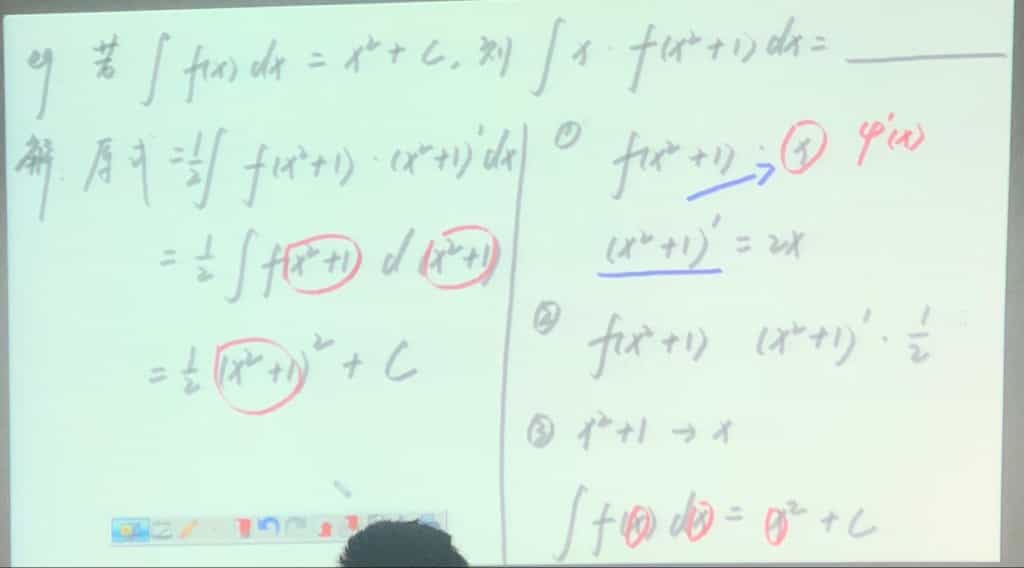 例 若 ∫ f(x) dx = x² + C, 则 ∫ x · f(x²+1) dx = ______
解: 原式 = 1/2 ∫ f(x²+1) · (x²+1)' dx
= 1/2 ∫ f(x²+1) d(x²+1)
= 1/2 (x²+1)² + C
① f(x²+1) · x φ'(x)
(x²+1)' = 2x
② f(x²+1) (x²+1)' · 1/2
③ x²+1 → x
∫ f(x) dx = x² + C